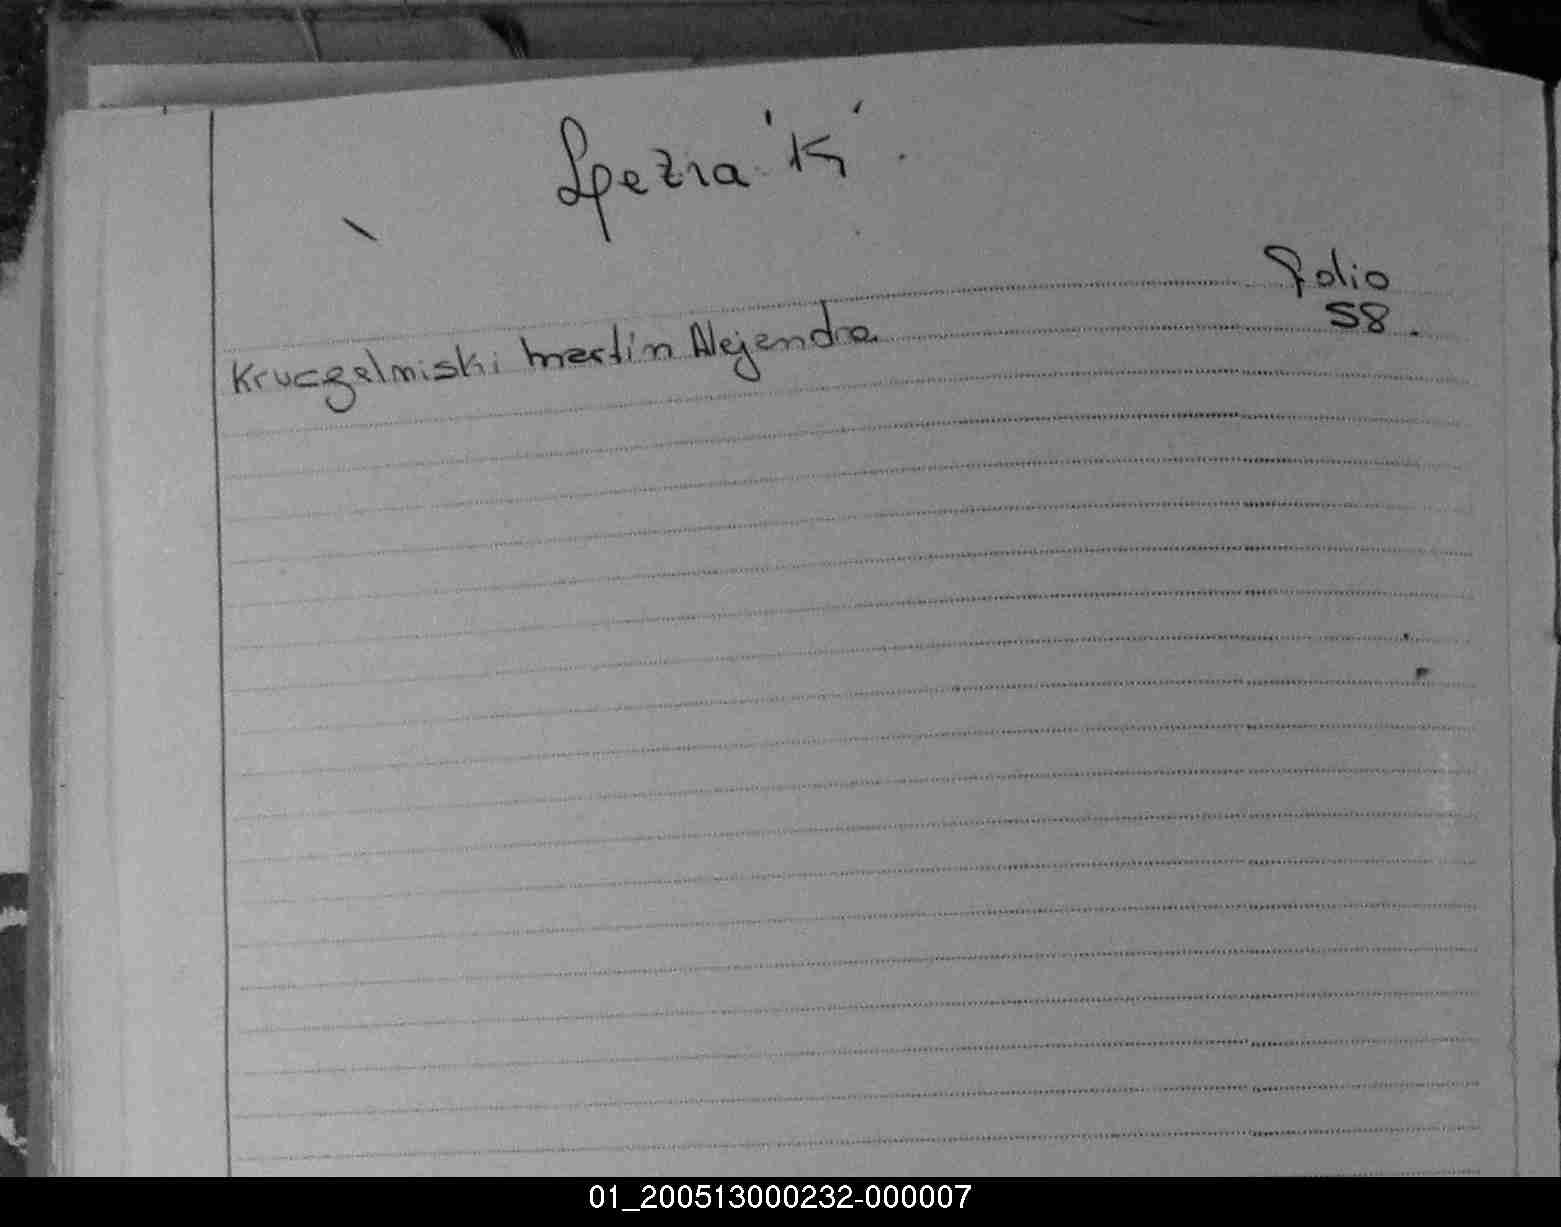 Lpezra 'K'.
folio
Kruczelmiski martin Alejandro 58.
01_200513000232-000007